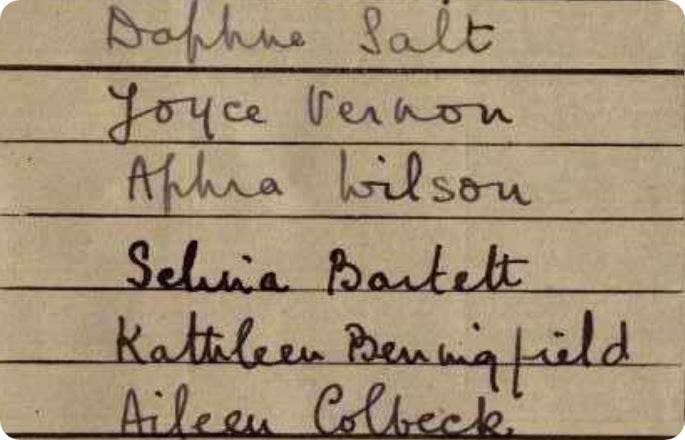 Daphne Salt
Joyce Vernon
Aphra Wilson
Selina Bartelt
Kathleen Benningfield
Aileen Colbeck